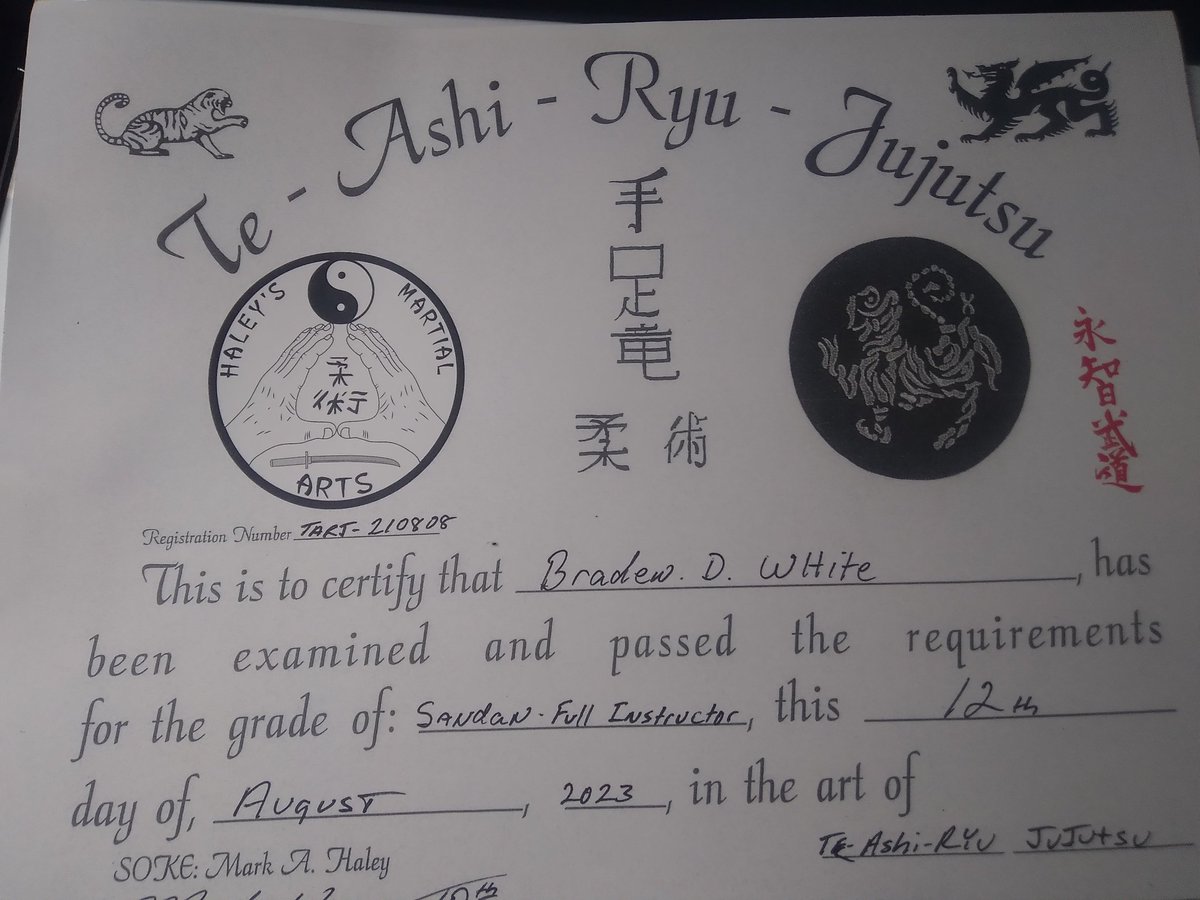 Te-Ashi-Ryu-Jujutsu
手
足
竜
柔 術
HALEY'S MARTIAL
柔
術
ARTS
永智武道
Registration Number TARJ-210808
This is to certify that Braden. D. WHite, has
been examined and passed the requirements
for the grade of: SANdaN-Full Instructor, this 12th
day of, AuguST, 2023, in the art of
TE-Ashi-RYu JuJutsu
SOKE: Mark A. Haley
10th